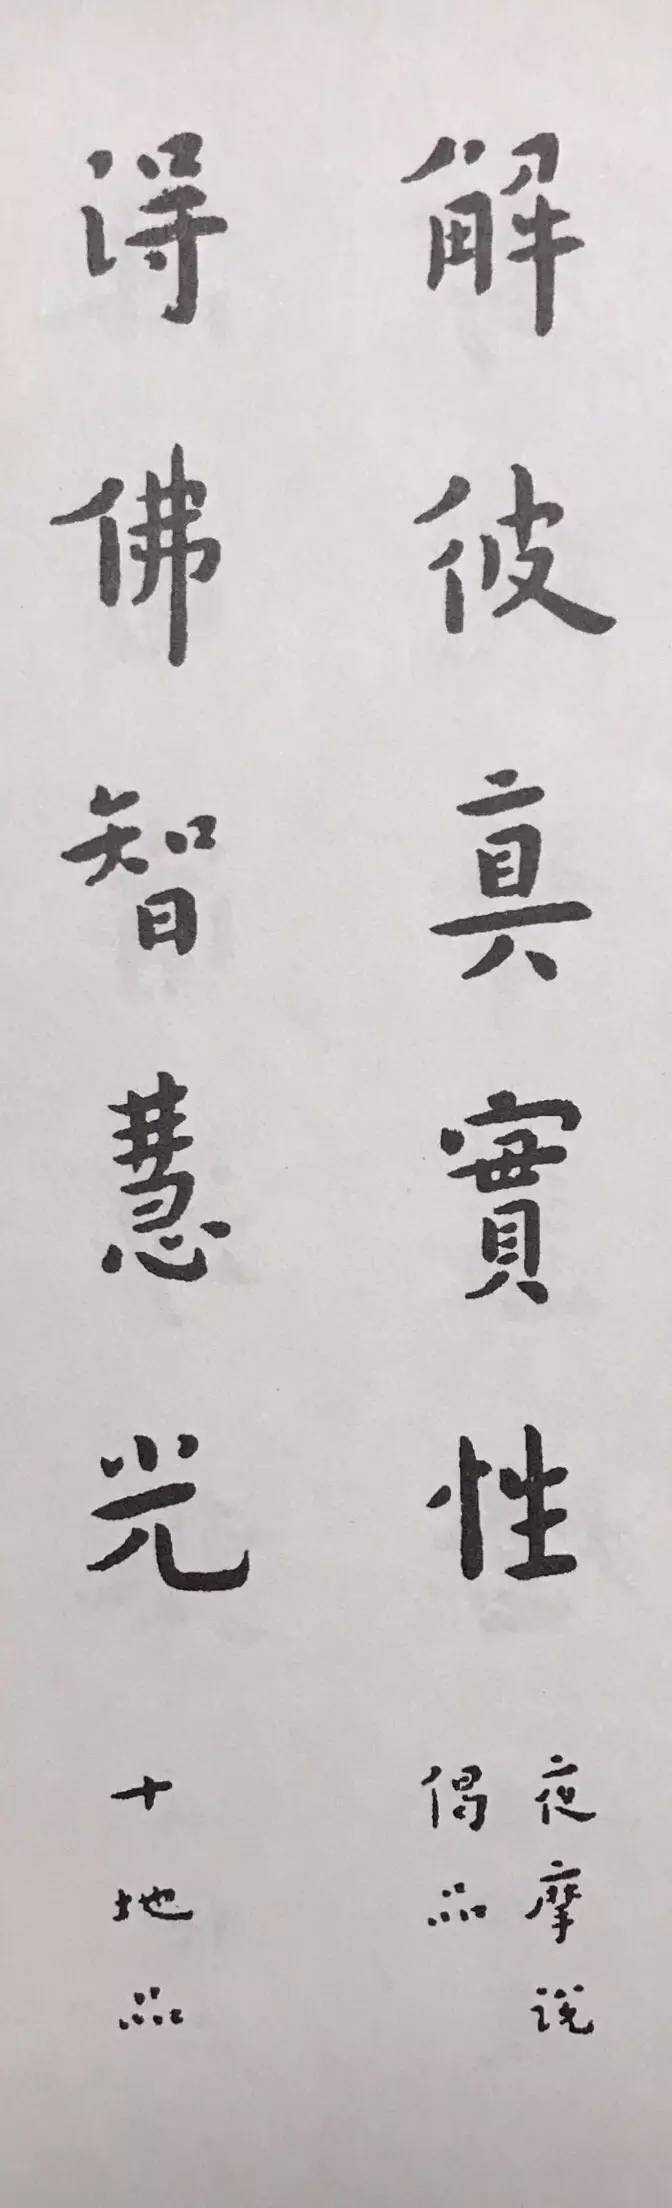 解彼真實性
夜摩说
偈品
得佛智慧光
十地品